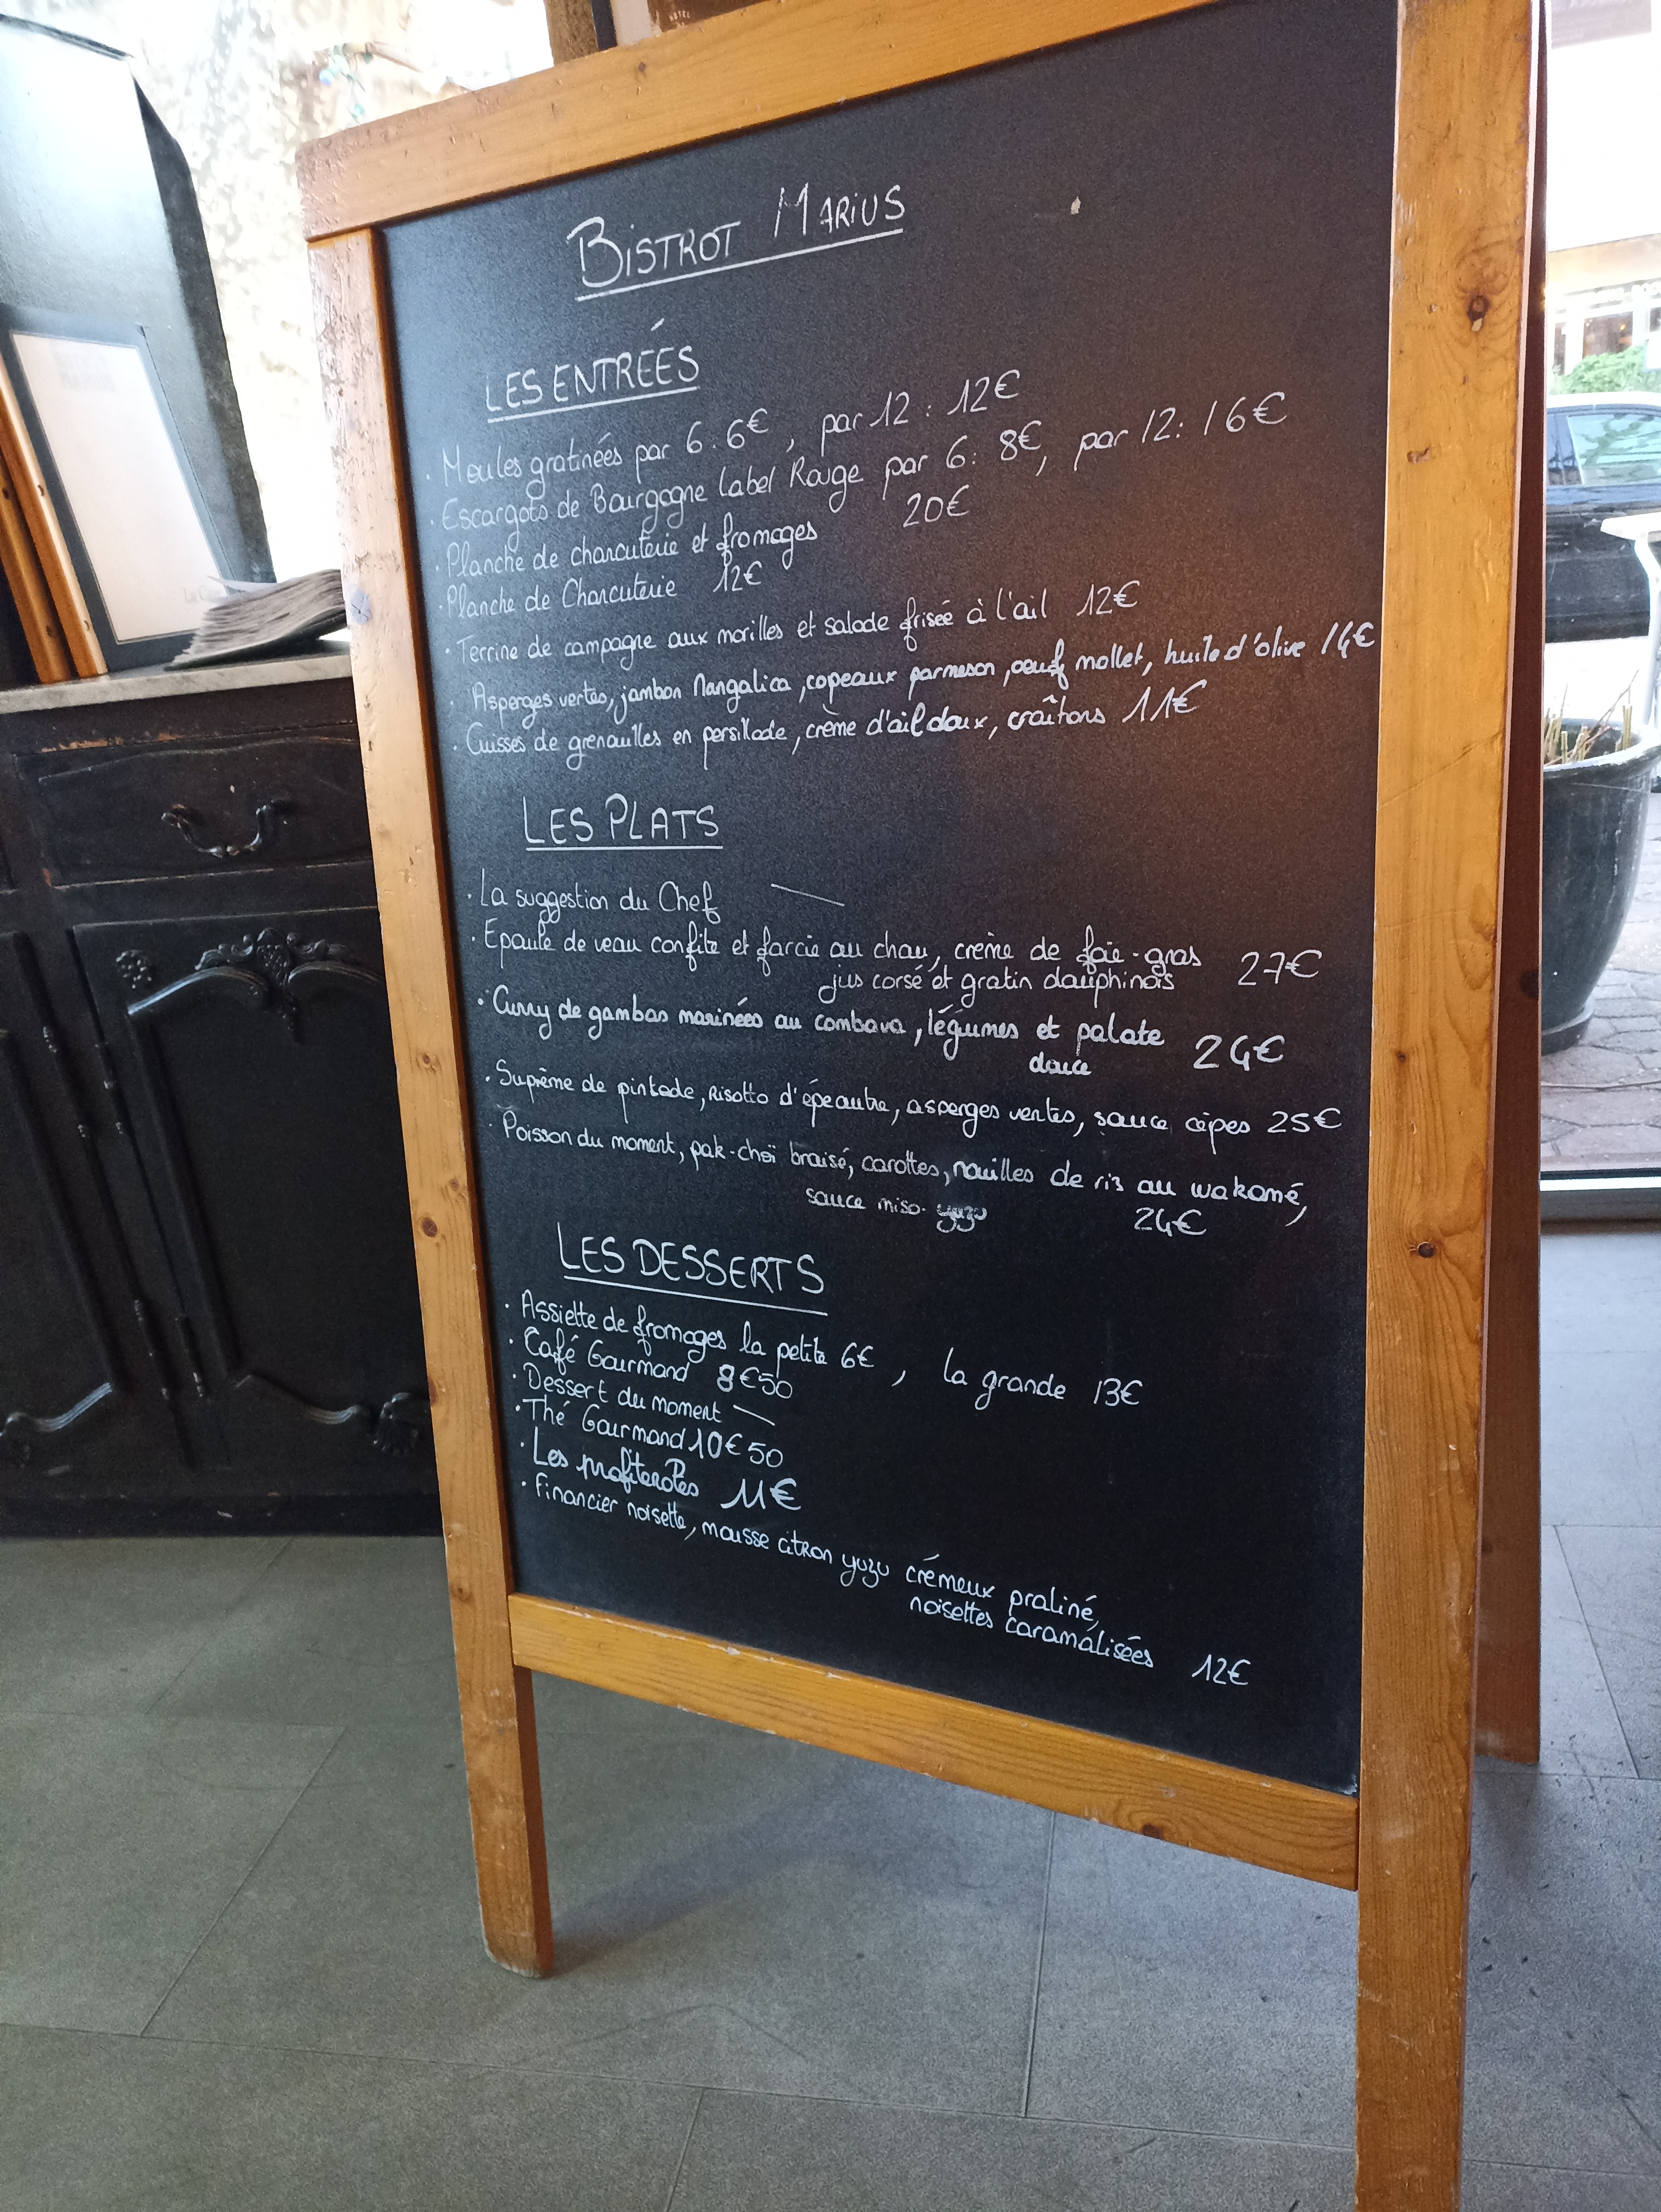 BISTROT MARIUS
LES ENTRÉES
. Moules gratinées par 6 : 6€ , par 12 : 12€
. Escargots de Bourgogne Label Rouge par 6 : 8€, par 12 : 16€
. Planche de charcuterie et fromages 20€
. Planche de Charcuterie 12€
. Terrine de campagne aux morilles et salade frisée à l'ail 12€
. Asperges vertes, jambon Mangalica, copeaux parmesan, oeuf mollet, huile d'olive 14€
. Cuisses de grenouilles en persillade, crème d'ail doux, croûtons 11€
LES PLATS
. La suggestion du Chef
. Epaule de veau confite et farcie au chou, crème de foie-gras
jus corsé et gratin dauphinois 27€
. Curry de gambas marinées au combava, légumes et patate
douce 24€
. Suprême de pintade, Risotto d'épeautre, asperges vertes, sauce cèpes 25€
. Poisson du moment, pak-choï braisé, carottes, nouilles de riz au wakamé,
sauce miso-yuzu 24€
LES DESSERTS
. Assiette de fromages la petite 6€ , la grande 13€
. Café Gourmand 8€50
. Dessert du moment
. Thé Gourmand 10€50
. Les profiteroles 11€
. Financier noisette, mousse citron yuzu crémeux praliné,
noisettes caramélisées 12€